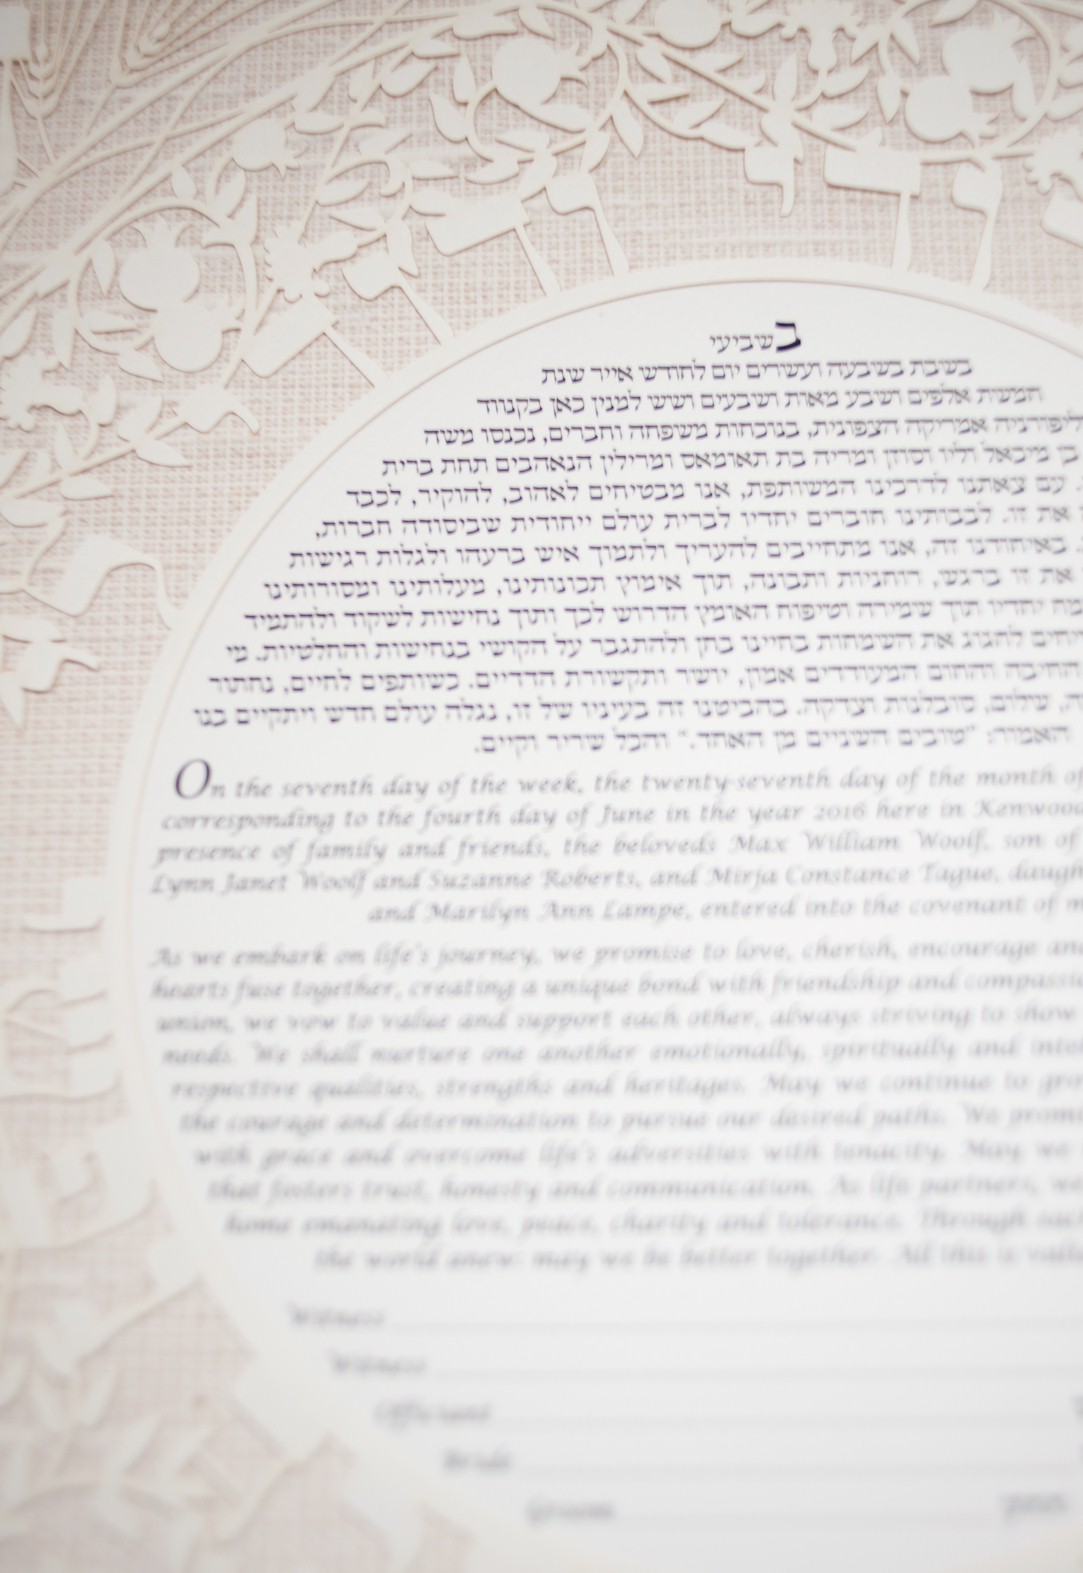 בשביעי
בשבת בשבעה ועשרים יום לחודש אייר שנת
חמשת אלפים ושבע מאות ושבעים ושש למנין כאן בקנווד
ליפורניה אמריקה הצפונית, בנוכחות משפחה וחברים, נכנסו משה
בן מיכאל וליו וסוזן ומריה בת תאומאס ומרילין הנאהבים תחת ברית
עם צאתנו לדרכינו המשותפת, אנו מבטיחים לאהוב, להוקיר, לכבד
את זו. לבבותינו חוברים יחדיו לברית עולם ייחודית שביסודה חברות,
באיחודנו זה, אנו מתחייבים להעריך ולתמוך איש ברעהו ולגלות רגישות
את זו ברגש, רוחניות ותבונה, תוך אימוץ תכונותינו, מעלותינו ומסורותינו
יחדיו תוך שמירה וטיפוח האומץ הדרוש לכך ותוך נחישות לשקוד ולהתמיד
לחגוג את השמחות בחיינו בחן ולהתגבר על הקושי בנחישות והחלטיות. מי
החיבה והחום המעודדים אמון, יושר ותקשורת הדדיים. כשותפים לחיים, נחתור
שלום, סובלנות וצדקה. בהביטנו זה בעיניו של זו, נגלה עולם חדש ויתקיים בנו
האמור: "טובים השניים מן האחד." והכל שריר וקיים.
On the seventh day of the week, the twenty-seventh day of the month of
corresponding to the fourth day of June in the year 2016 here in Kenwood
presence of family and friends, the beloveds Max William Woolf, son of
Lynn Janet Woolf and Suzanne Roberts, and Mirja Constance Tague, daugh
and Marilyn Ann Lampe, entered into the covenant of m
As we embark on life's journey, we promise to love, cherish, encourage and
hearts fuse together, creating a unique bond with friendship and compassi
union, we vow to value and support each other, always striving to show
needs. We shall nurture one another emotionally, spiritually and intel
respective qualities, strengths and heritages. May we continue to gro
the courage and determination to pursue our desired paths. We promi
with grace and overcome life's adversities with tenacity. May we
that fosters trust, honesty and communication. As life partners, we
home emanating love, peace, charity and tolerance. Through each
the world anew: may we be better together. All this is valid
Witness
Witness
Officiant
Bride
Groom